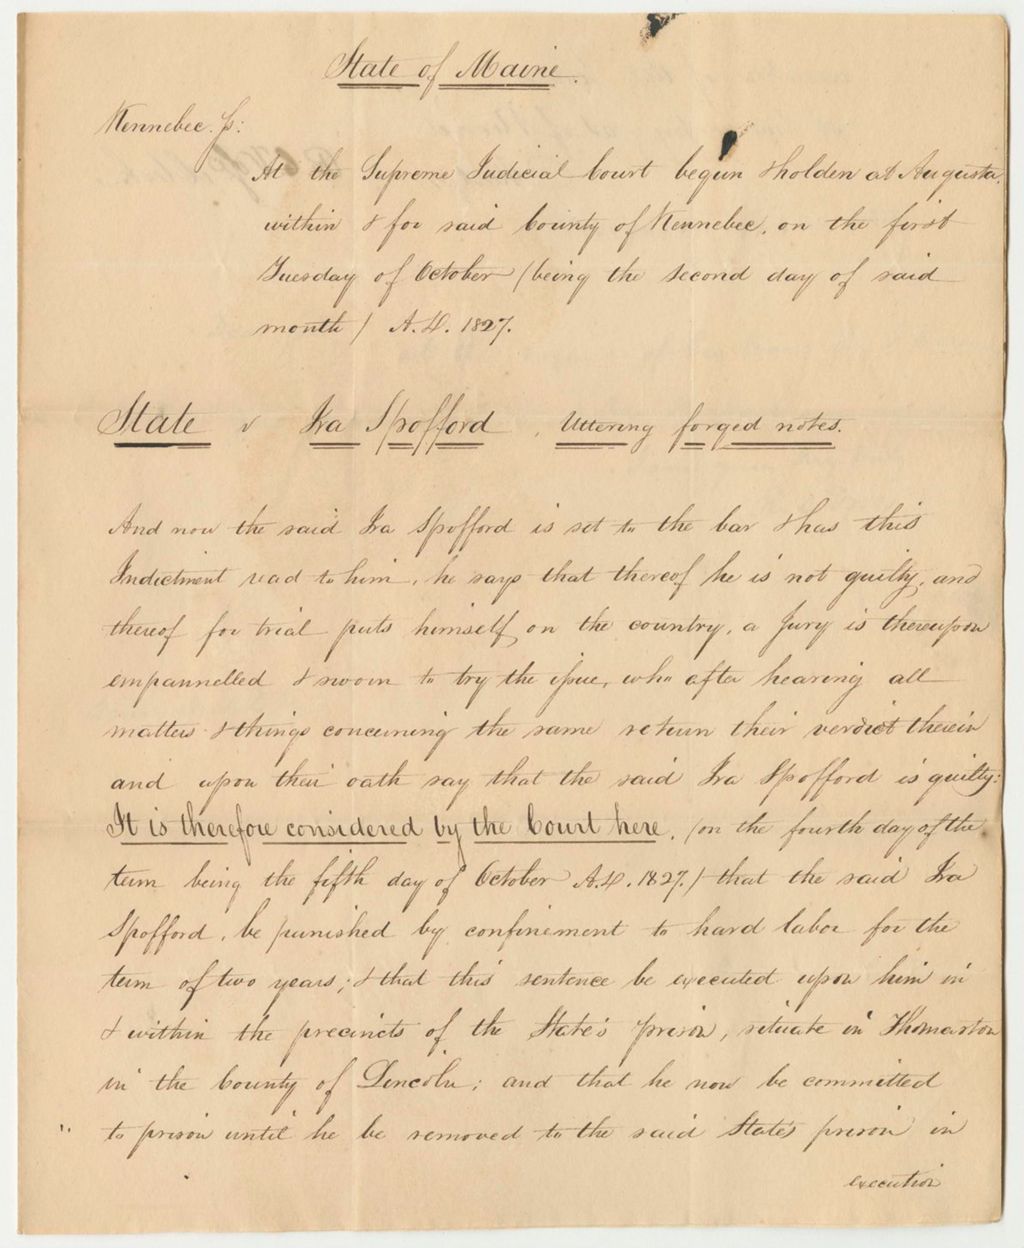 State of Maine.
Kennebec. ss:
At the Supreme Judicial Court begun & holden at Augusta,
within & for said County of Kennebec, on the first
Tuesday of October (being the second day of said
month) A.D. 1827.
State v Ira Spofford. Uttering forged notes.
And now the said Ira Spofford is set to the bar & has this
Indictment read to him, he says that thereof he is not guilty, and
thereof for trial puts himself on the country, a Jury is thereupon
empannelled & sworn to try the issue, who after hearing all
matters & things concerning the same return their verdict therein
and upon their oath say that the said Ira Spofford is guilty:
It is therefore considered by the Court here, (on the fourth day of the
term being the fifth day of October A.D. 1827.) that the said Ira
Spofford, be punished by confinement to hard labor for the
term of two years; & that this sentence be executed upon him in
& within the precincts of the State's prison, situate in Thomaston
in the County of Lincoln; and that he now be committed
to prison until he be removed to the said State's prison in
execution